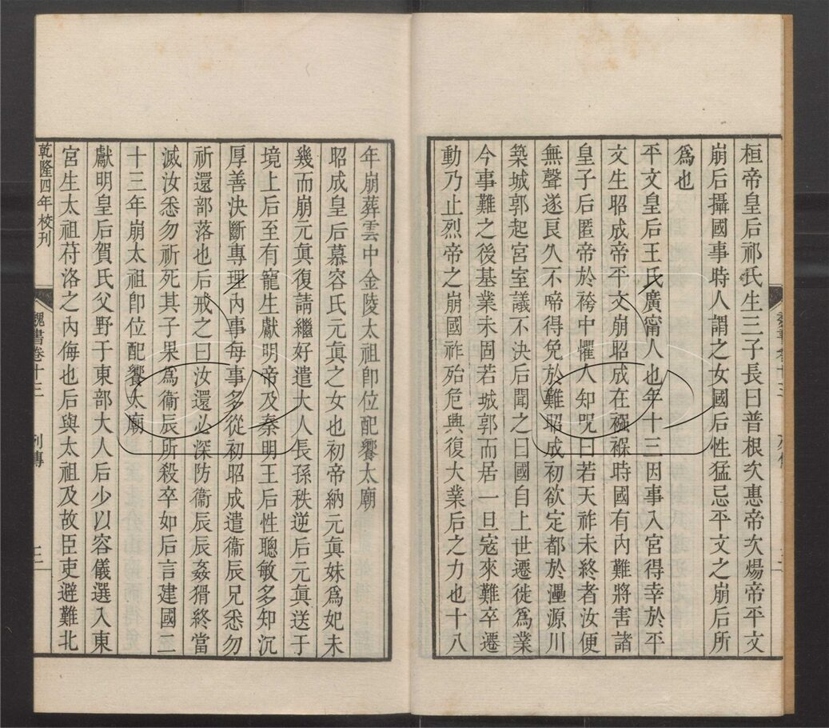 桓帝皇后祁氏生三子長曰普根次惠帝次煬帝平文
崩后攝國事時人謂之女國后性猛忌平文之崩后所
爲也
平文皇后王氏廣甯人也年十三因事入宮得幸於平
文生昭成帝平文崩昭成在襁褓時國有內難將害諸
皇子后匿帝於袴中懼人知咒曰若天祚未終者汝便
無聲遂良久不啼得免於難昭成初欲定都於灅源川
築城郭起宮室議不決后聞之曰國自上世遷徙爲業
今事難之後基業未固若城郭而居一旦寇來難卒遷
動乃止烈帝之崩國祚殆危興復大業后之力也十八
魏書卷十三 列傳
年崩葬雲中金陵太祖卽位配饗太廟
昭成皇后慕容氏元眞之女也初帝納元眞妹爲妃未
幾而崩元眞復請繼好遣大人長孫秩逆后元眞送于
境上后至有寵生獻明帝及秦明王后性聰敏多知沉
厚善決斷專理內事每事多從初昭成遣衞辰兄悉勿
祈還部落也后戒之曰汝還必深防衞辰辰姦猾終當
滅汝悉勿祈死其子果爲衞辰所殺卒如后言建國二
十三年崩太祖卽位配饗太廟
獻明皇后賀氏父野于東部大人后少以容儀選入東
宮生太祖苻洛之內侮也后與太祖及故臣吏避難北
乾隆四年校刊 魏書卷十三 列傳 二